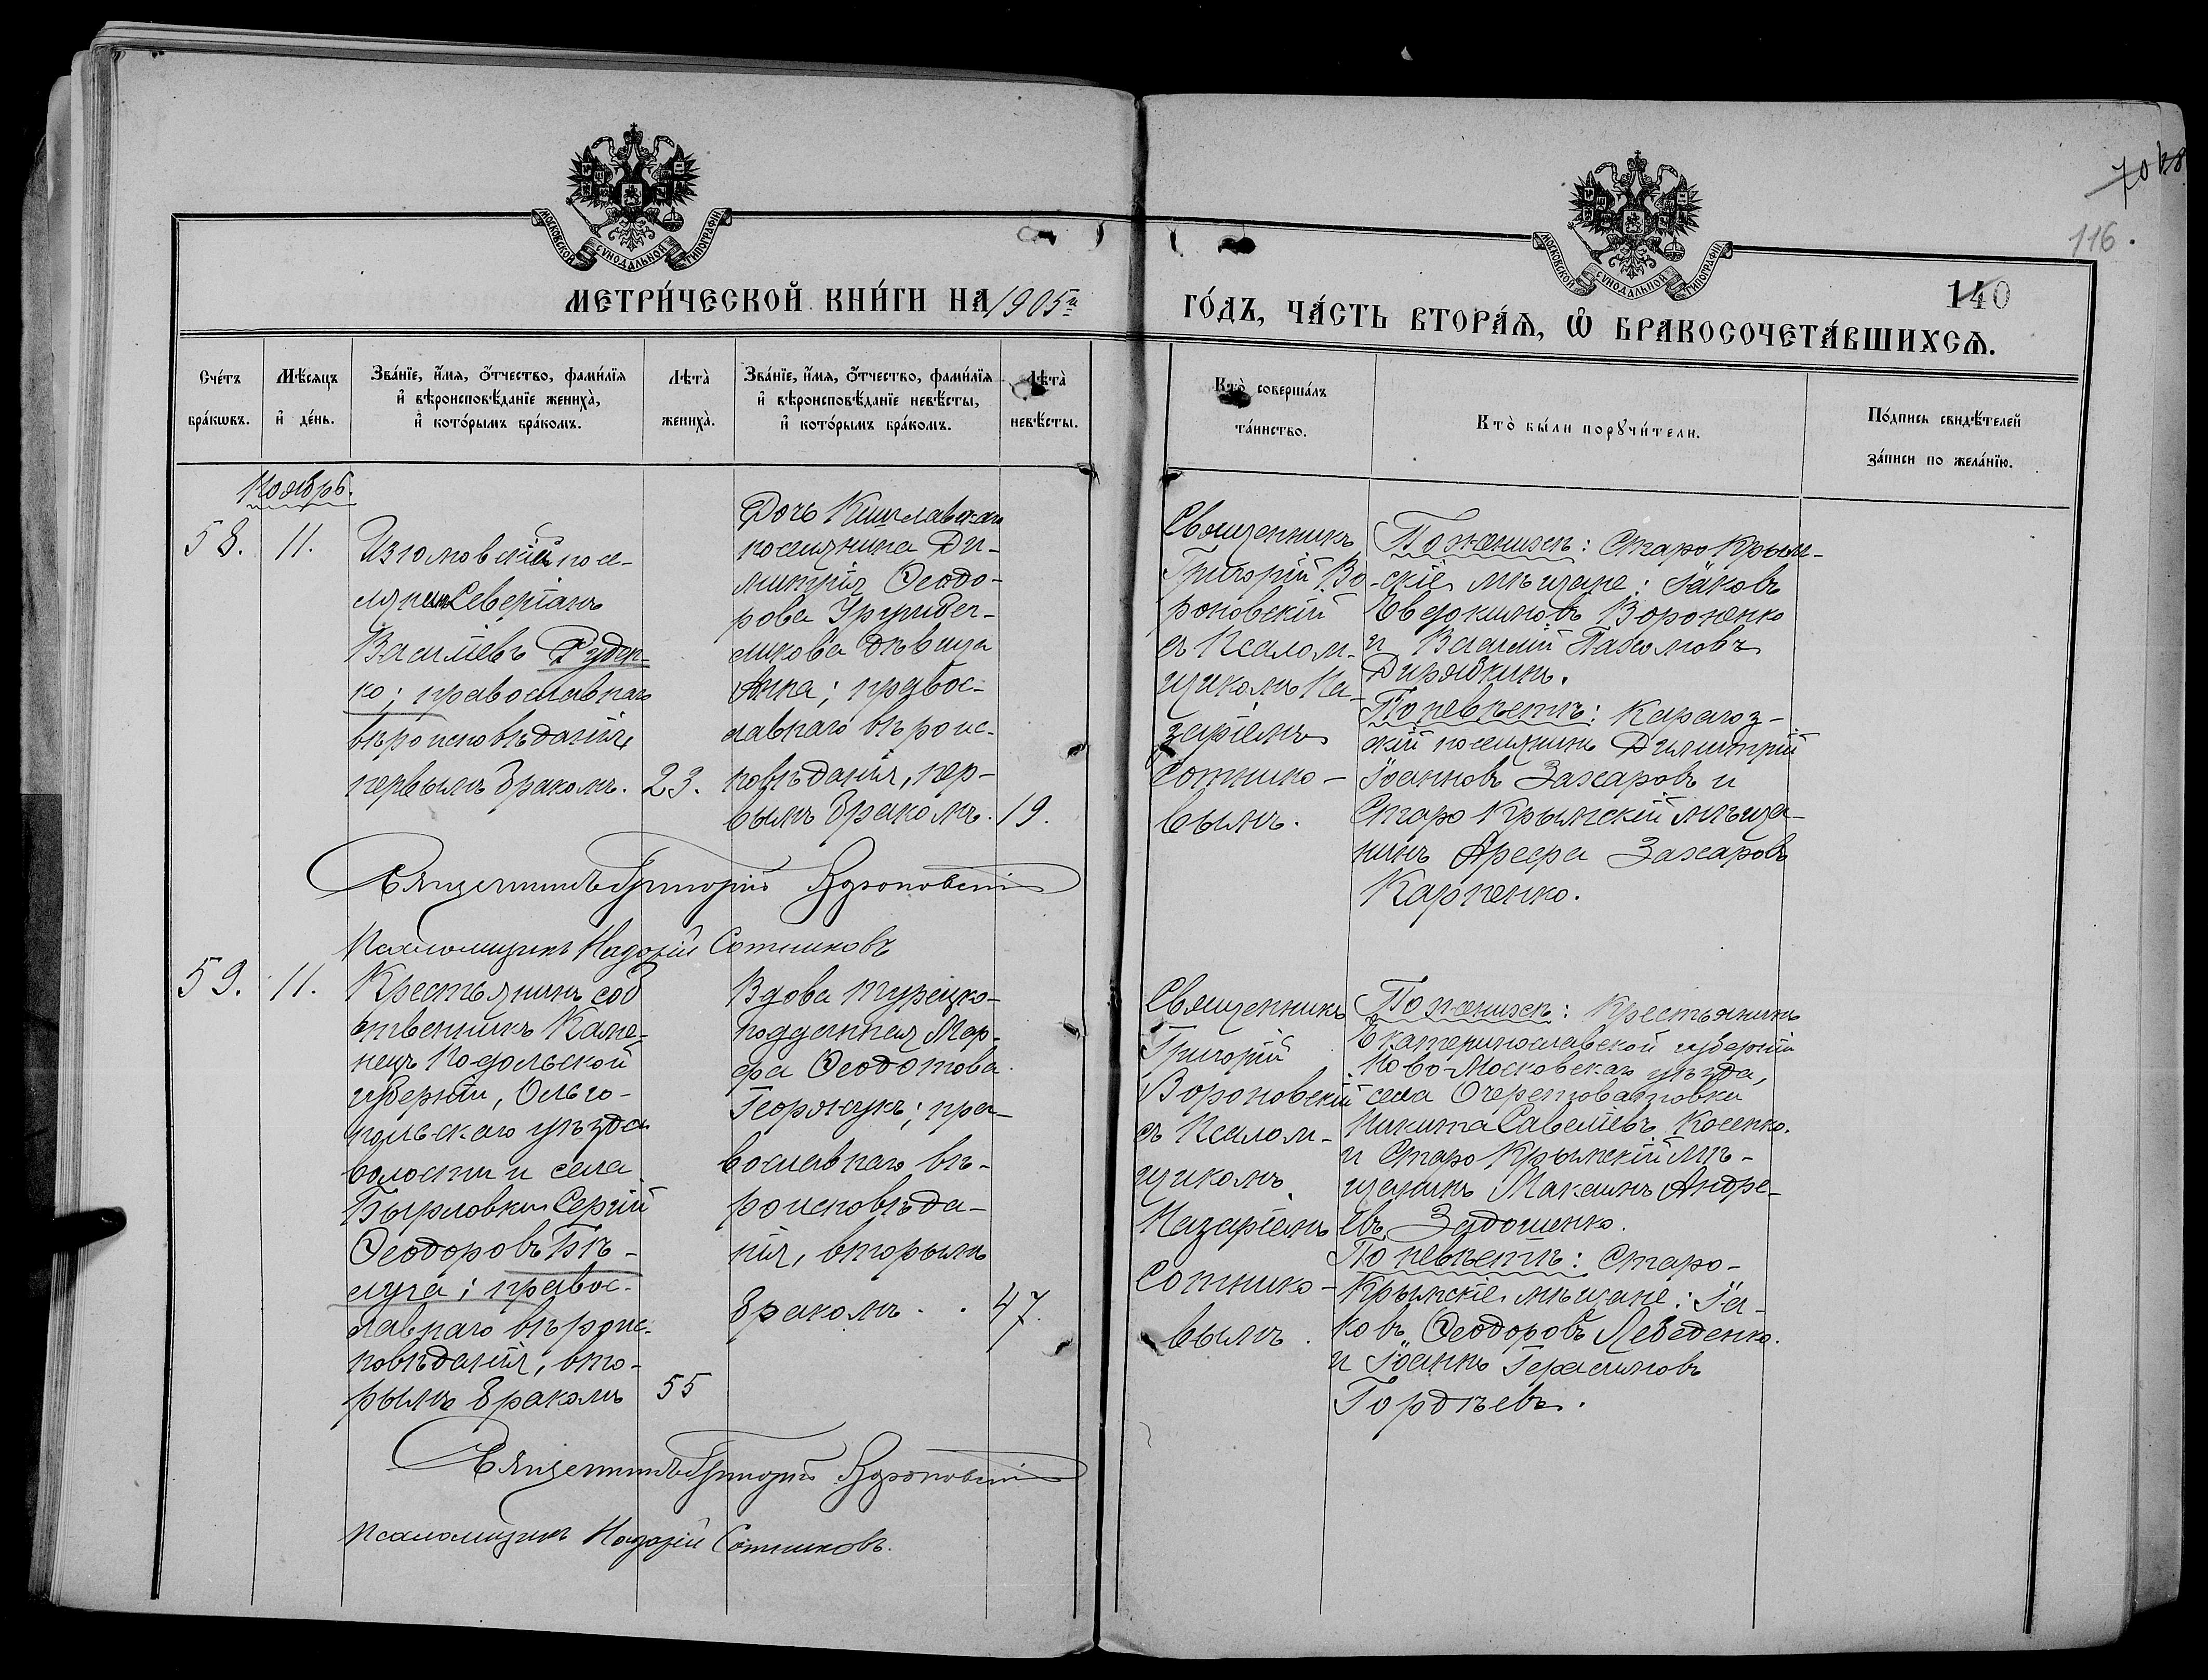 МОСКОВСКОЙ СѴНОДАЛЬНОЙ ТИПОГРАФІИ
МОСКОВСКОЙ СѴНОДАЛЬНОЙ ТИПОГРАФІИ
70
116.
140
МЕТРИ́ЧЕСКОЙ КНИ́ГИ НА 1905й
ГО́ДЪ, ЧА́СТЬ ВТОРА́Ѧ, Ѽ БРАКОСОЧЕТА́ВШИХСѦ.
Сче́тъ бра́кѡвъ.
Мѣ́сяцъ и҆ де́нь.
Зва́нїе, и҆́мя, ѻ҆́тчество, фами́лїя и҆ вѣроисповѣ́данїе жениха̀, и҆ кото́рымъ бра́комъ.
Лѣта̀ жениха̀.
Зва́нїе, и҆́мя, ѻ҆́тчество, фами́лїя и҆ вѣроисповѣ́данїе невѣ́сты, и҆ кото́рымъ бра́комъ.
Лѣта̀ невѣ́сты.
Кто̀ соверша́лъ та́инство.
Кто̀ бы́ли порꙋчи́тели.
По́дпись свидѣ́телей за́писи по жела́нїю.
Ноябрь.
58.
11.
Изюмовскій посе-
лянинъ Северіанъ
Василіевъ Руден-
ко; православнаго
вѣроисповѣданія,
первымъ бракомъ.
23.
Дочь Кишлавскаго
поселянина Ди-
митрія Ѳеодо-
рова
дѣвица
Анна; правос-
лавнаго вѣроис-
повѣданія, пер-
вымъ бракомъ.
19.
Священникъ
Григорій Во-
роновскій
съ Псалом-
щикомъ На-
заріемъ
Сотнико-
вымъ.
По женихѣ: Старо Крым-
скіе мѣщане: Іаковъ
Евдокимовъ Вороненко
и Василій Пахомовъ
По невѣстѣ: Карагоз-
скій поселянинъ Димитрій
Іоанновъ Захаровъ и
Старо Крымскій мѣща-
нинъ Арефа Захаровъ
Карпенко.
Священникъ Григорій Вороновскій
Псаломщикъ Назарій Сотниковъ
59.
11.
Крестьянинъ соб
ственникъ Каме-
нецъ Подольской
губерніи, Ольго-
польскаго уѣзда
волости и села
Бырловки Сергій
Ѳеодоровъ Бѣ-
луга; правос-
лавнаго вѣроис-
повѣданія, вто-
рымъ бракомъ
55
Вдова турецко-
подданная Мар-
фа Ѳеодотова
пра-
вославнаго вѣ-
роисповѣда-
нія, вторымъ
бракомъ. .
47.
Священникъ
Григорій
Вороновскій
съ Псалом-
щикомъ
Назаріемъ
Сотнико-
вымъ.
По женихѣ: Крестьянинъ
Екатеринославской губерніи
Ново-Московскаго уѣзда,
села Очеретоватовки
Никита Савеліевъ Косенко.
и Старо Крымскій мѣ-
щанинъ Максимъ Андре-
евъ Задошенко.
По невѣстѣ: Старо-
Крымскіе мѣщане: Іа-
ковъ Ѳеодоровъ Лебеденко.
и Іоаннъ Герасимовъ
Гордѣевъ.
Священникъ Григорій Вороновскій
Псаломщикъ Назарій Сотниковъ.